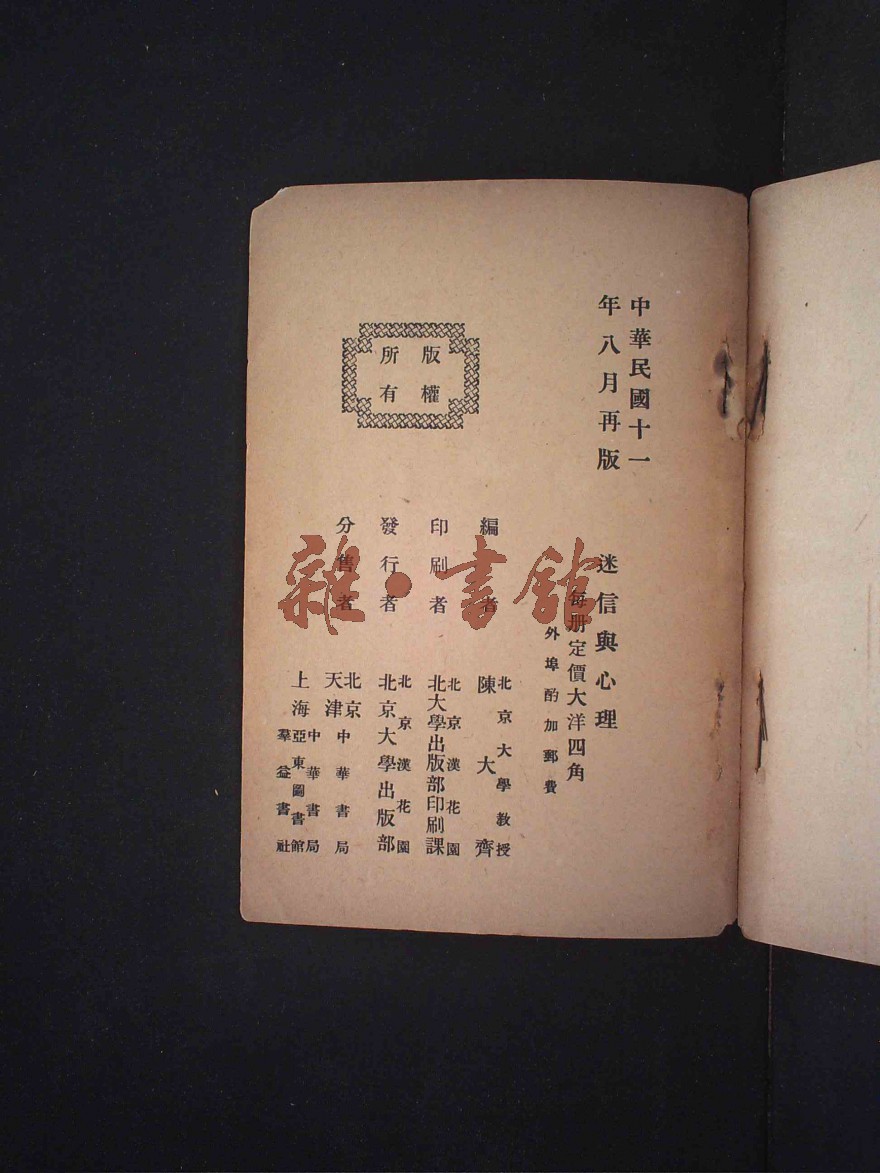 中華民國十一
年八月再版
迷信與心理
每册定價大洋四角
外埠酌加郵費
編者
北京大學教授
陳大齊
印刷者
北京漢花園
北大學出版部印刷課
發行者
北京漢花園
北京大學出版部
分售者
北京
天津
中華書局
上海
中華書局
亞東圖書館
羣益書社
版權
所有
雜·書館